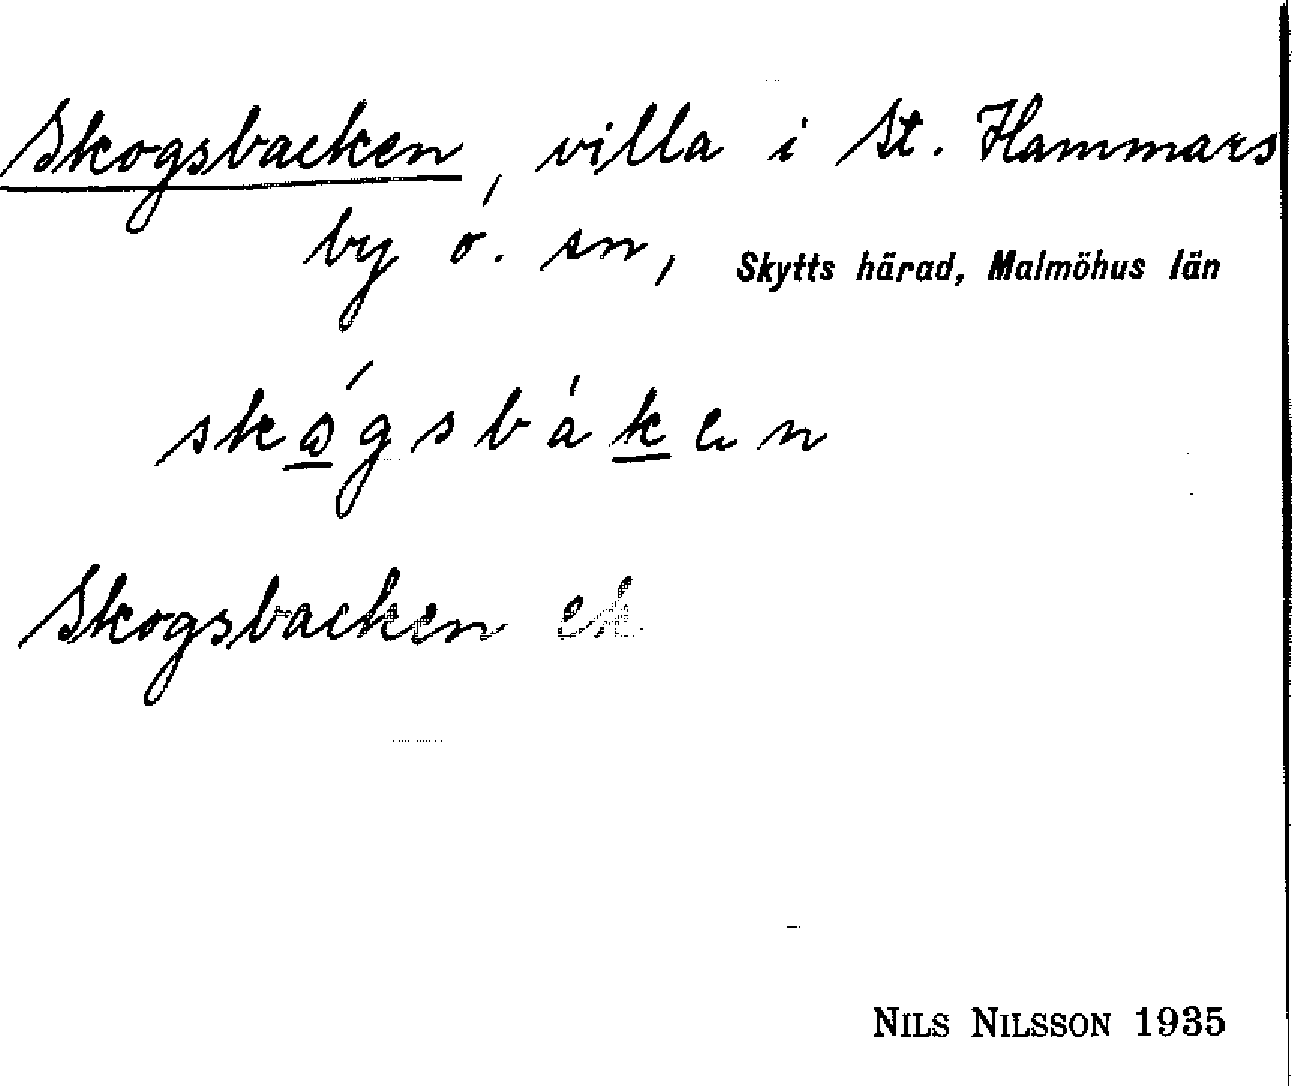 Skogsbacken, villa i St. Hammars
by o. sn, Skytts härad, Malmöhus län
skógsbáken
Skogsbacken ek
NILS NILSSON 1935